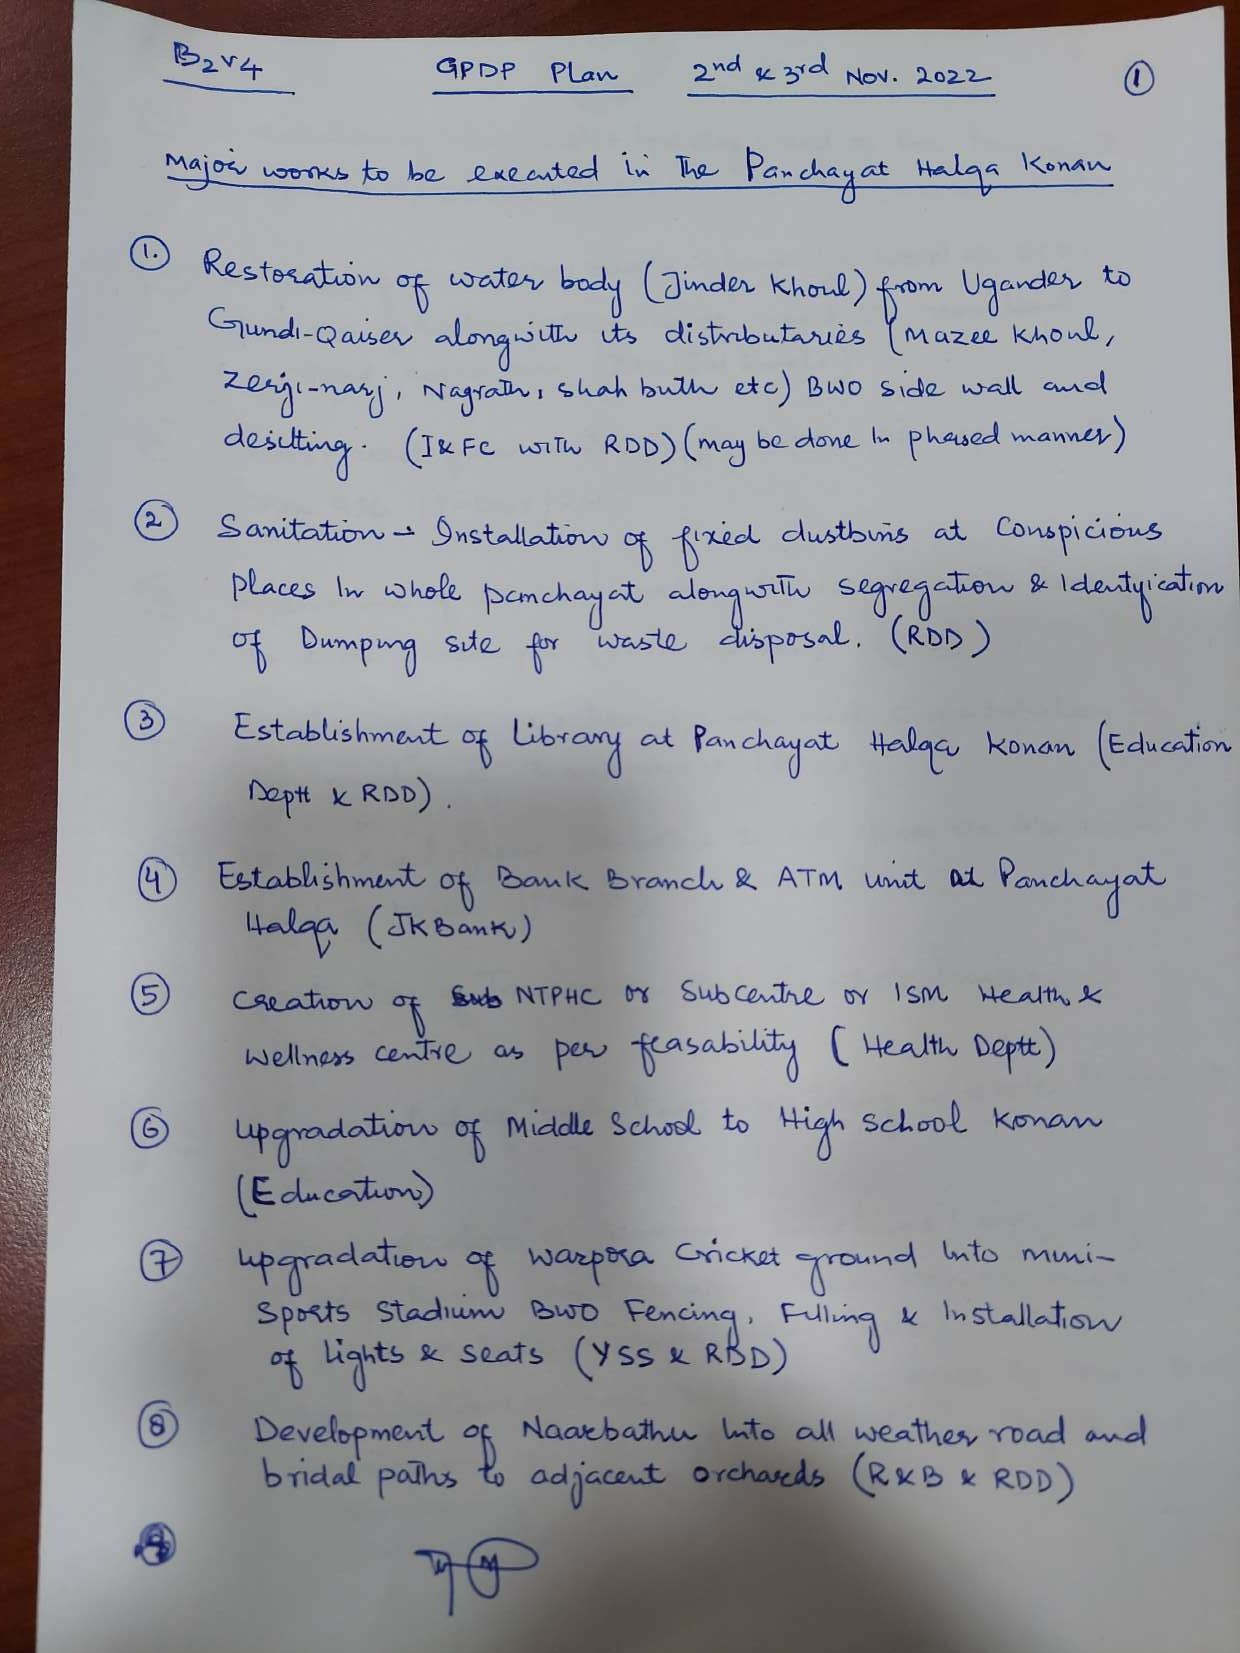 B2V4 GPDP Plan 2nd & 3rd Nov. 2022 1
Major works to be executed in The Panchayat Halqa Konan
1. Restoration of water body (Jinder Khoul) from Ugander to
Gundi-Qaiser alongwith its distributaries (Mazee Khoul,
Zergi-narj, Nagrath, Shah buth etc) BWO side wall and
desilting. (I&FC with RDD) (may be done in phased manner)
2 Sanitation - Installation of fixed dustbins at Conspicious
places in whole panchayat alongwith segregation & Identification
of Dumping site for waste disposal. (RDD)
3 Establishment of Library at Panchayat Halqa Konan (Education
Deptt & RDD).
4 Establishment of Bank Branch & ATM unit at Panchayat
Halqa (JK Bank)
5 Creation of NTPHC or Subcentre or ISM Health &
Wellness centre as per feasability (Health Deptt)
6 Upgradation of Middle School to High school Konan
(Education)
7 Upgradation of Warpora Cricket ground into mini-
Sports Stadium BWO Fencing, Filling & Installation
of lights & seats (YSS & RDD)
8 Development of Naarbathu into all weather road and
bridal paths to adjacent orchards (R&B & RDD)